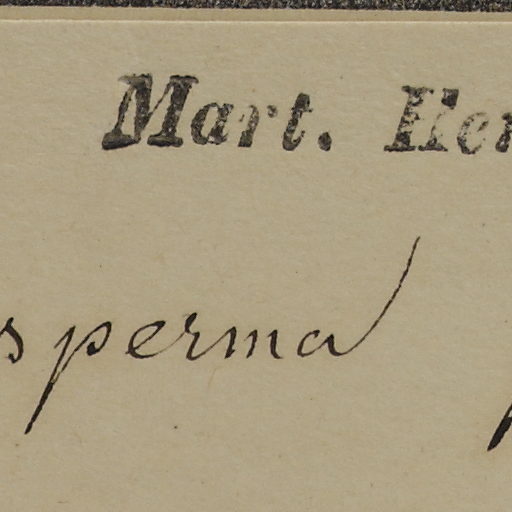 Mart. Her
sperma